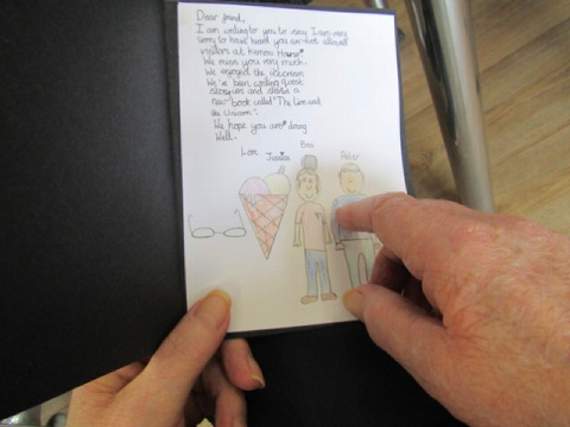 Dear friend,
I am writing to you to say I am very
sorry to have heard you are not allowed
visitors at House
We miss you very much.
We enjoyed the icecream
We've been writing quest
storyies and started a
new book called "The Lion and
the Unicorn".
We hope you are doing
Well.
Love Jessica
Bea
Peter